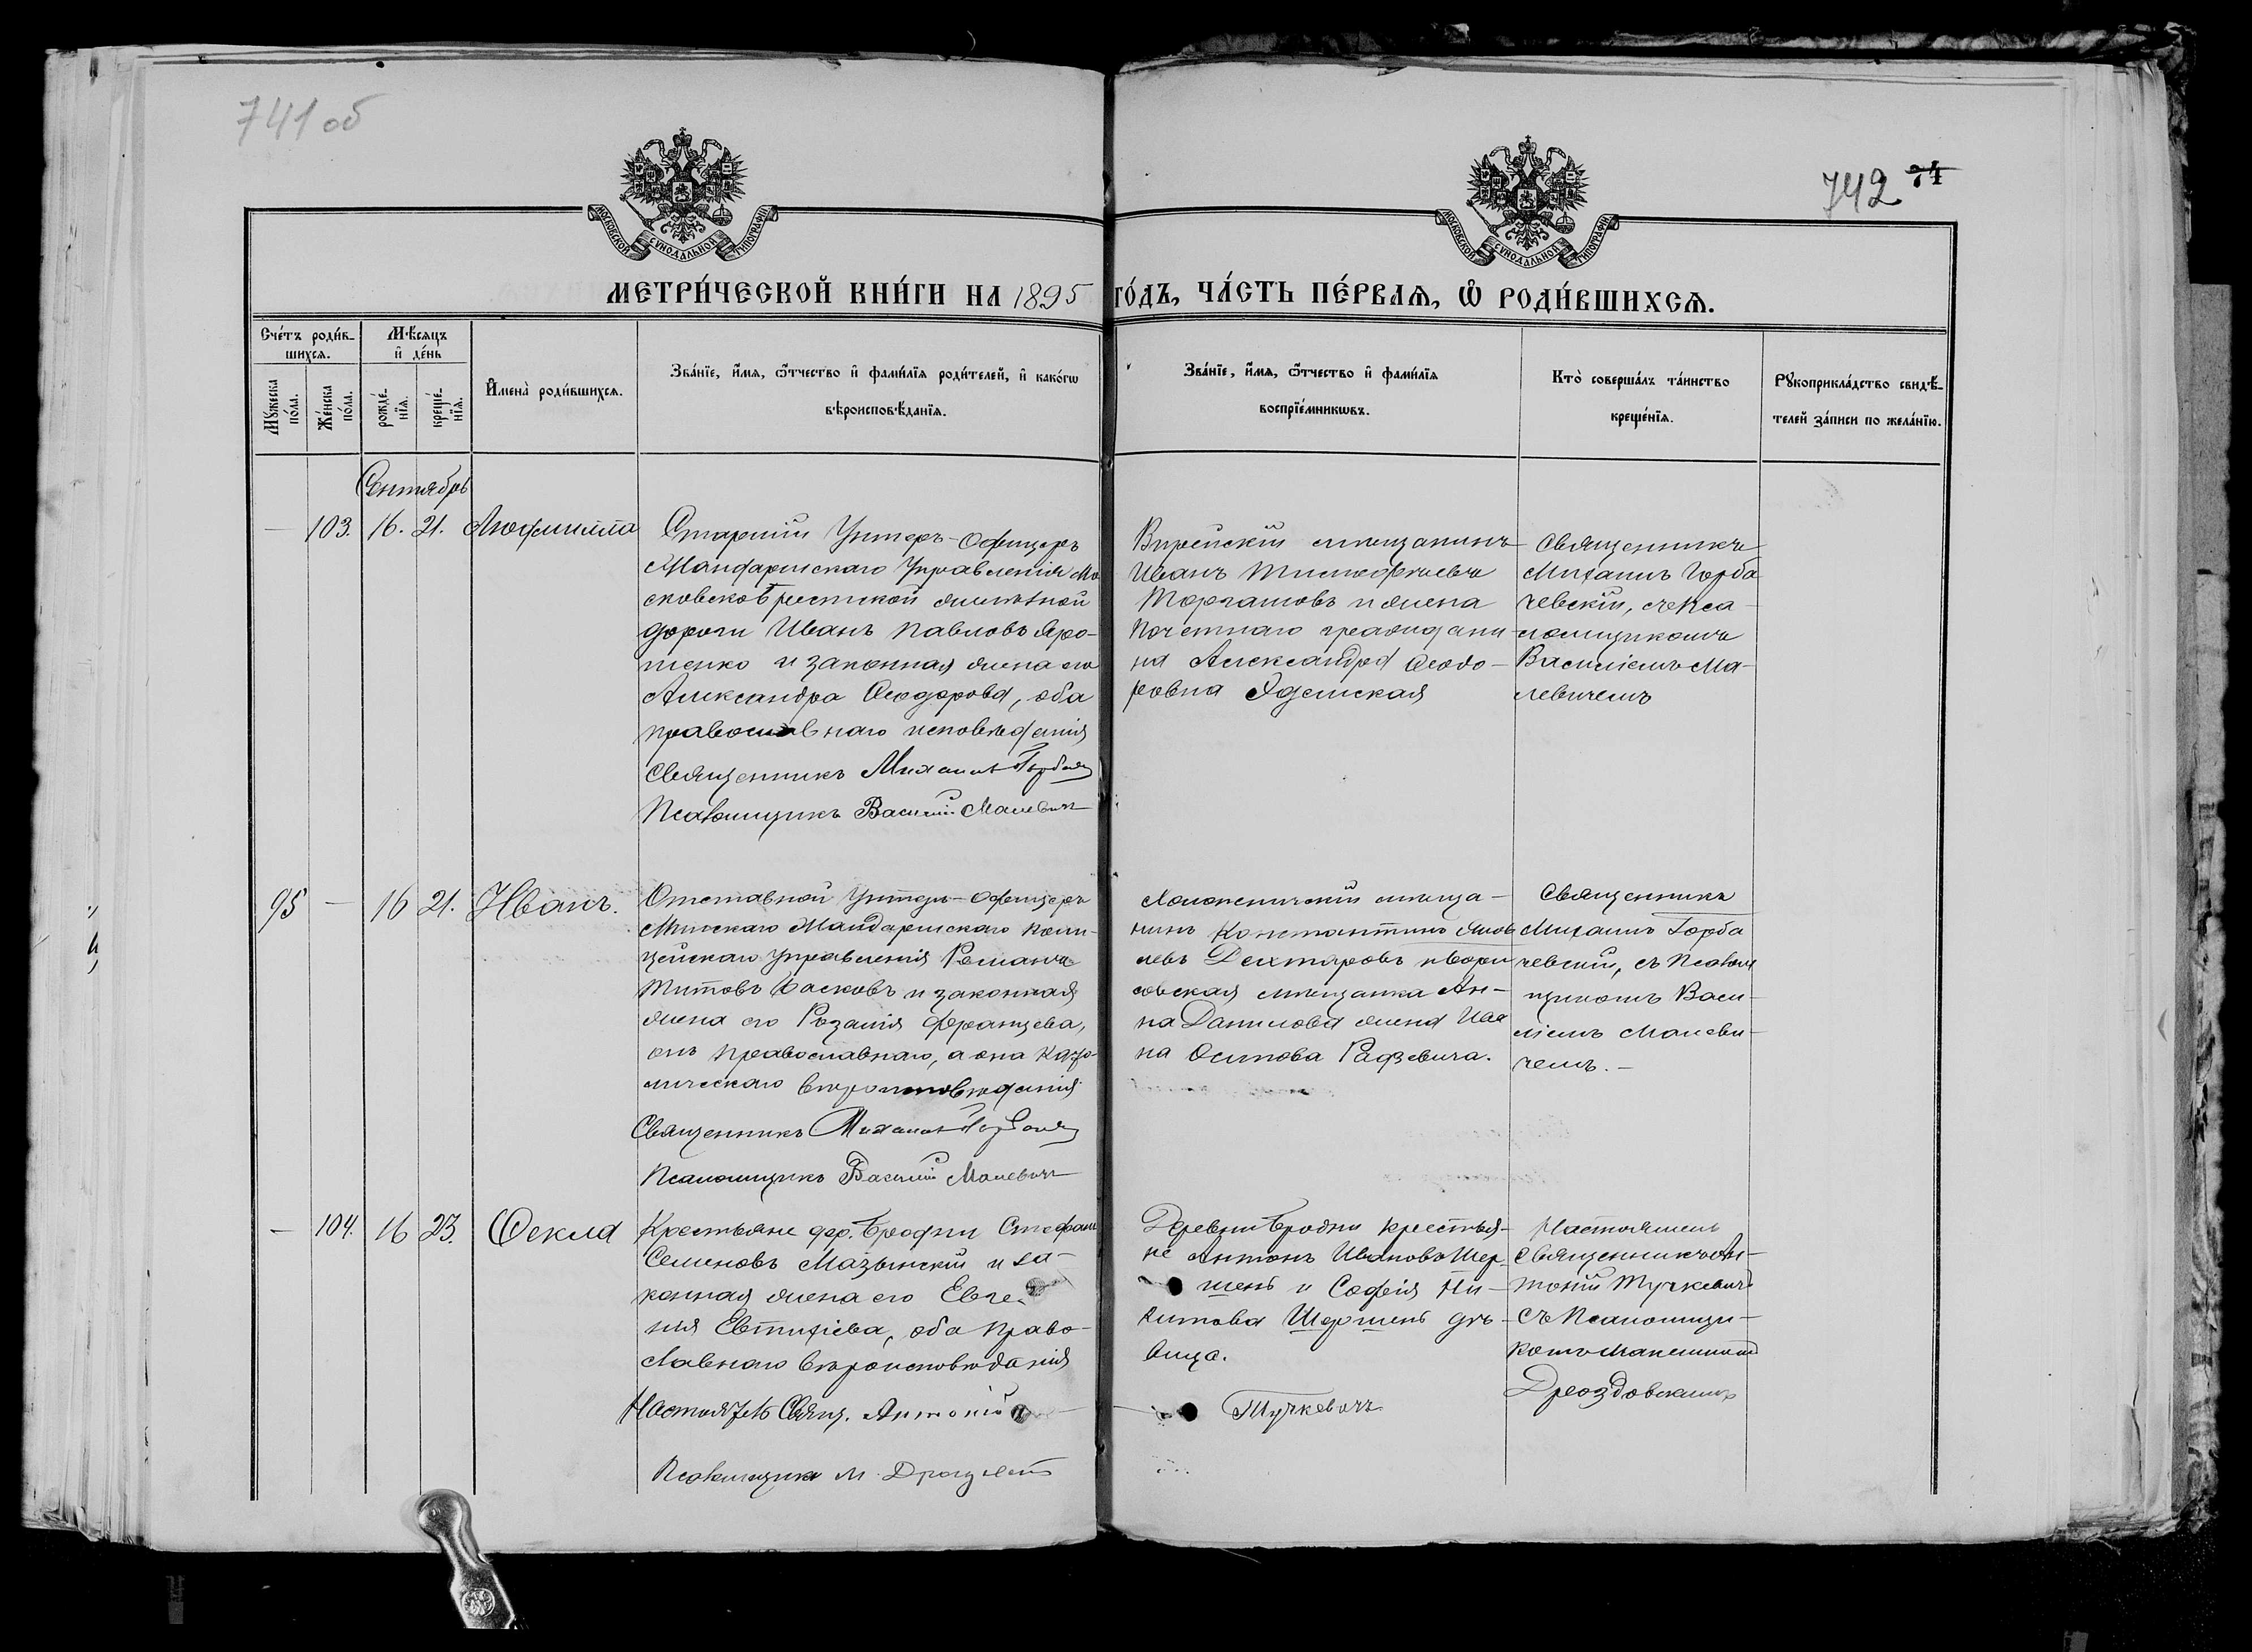 741 об
742 74
МОСКОВСКОЙ СѴНОДАЛЬНОЙ ТИПОГРАФІИ
МОСКОВСКОЙ СѴНОДАЛЬНОЙ ТИПОГРАФІИ
МЕТРИ́ЧЕСКОЙ КНИ́ГИ НА 1895 ГО́ДЪ, ЧА́СТЬ ПЕ́РВАѦ, Ѡ҆ РОДИ́ВШИХСѦ.
Сче́тъ роди́в-
шихсѧ.
Мꙋжеска
по́ла.
Же́нска
по́ла.
М·ѣ́сѧцъ
и҆ де́нь
рожде́-
нїѧ.
креще́-
нїѧ.
И҆мена̀ роди́вшихсѧ.
Зва́нїе, и҆́мѧ, ѻ҆́тчество и҆ фами́лїѧ роди́телей, и҆ како́гѡ
вѣроисповѣ́данїѧ.
Зва́нїе, и҆́мѧ, ѻ҆́тчество и҆ фами́лїѧ
воспрїе́мникѡвъ.
Кто̀ соверша́лъ та́инство
креще́нїѧ.
Рꙋкоприкла́дство свидѣ́-
телей за́писи по жела́нїю.
Сентябрь
— 103. 16. 21. Людмилла
Старшій Унтеръ-Офицеръ
Жандармскаго Управленія Мо
сковскоБрестской желѣзной
дороги Иванъ Павловъ Яро-
шенко и законная жена его
Александра Ѳеодорова, оба
православнаго исповѣданія
Священникъ Михаилъ
Псаломщикъ Василій Малевичъ
мѣщанинъ
Иванъ Тимофѣевъ
и жена
Почетнаго гражд ани-
на Александра Ѳеодо-
ровна
Священникъ
Михаилъ Горба
чевскій, съ Пса-
ломщикомъ
Василіемъ Ма-
левичемъ
95 — 16 21. Иванъ.
Отставной Унтеръ-Офицеръ
Минскаго Жандармскаго Поли-
цейскаго Управленія Романъ
Титовъ Басковъ и законная
жена его Розалія Францева,
онъ православнаго, а она като-
лическаго вѣроисповѣданія
Священникъ Михаилъ
Псаломщикъ Василій Малевичъ
мѣща-
нинъ Константинъ Яков
левъ Дехтяровъ и Бори
совская мѣщанка Ан-
на Данилова жена Ива
на Осипова Радзевича.
Священникъ
Михаилъ Горба
чевскій, съ Псалом
щикомъ Васи-
ліемъ Малеви-
чемъ. —
— 104. 16 23. Ѳекла
Крестьяне дер. Бродни Стефанъ
Семеновъ Мазынскій и за-
конная жена его Евге-
нія Евтихіева, оба право-
славнаго вѣроисповѣданія
Настоятель Свящ. Антоній
Тучкевичъ
Псаломщикъ М.
Деревни Бродни крестья-
не Антонъ Ивановъ Шер-
шень и Софія Ни-
китова Шершень дѣ-
вица.
Настоятель
Священникъ Ан-
тоній Тучкевичъ
съ Псаломщи-
комъ
Дроздовскимъ